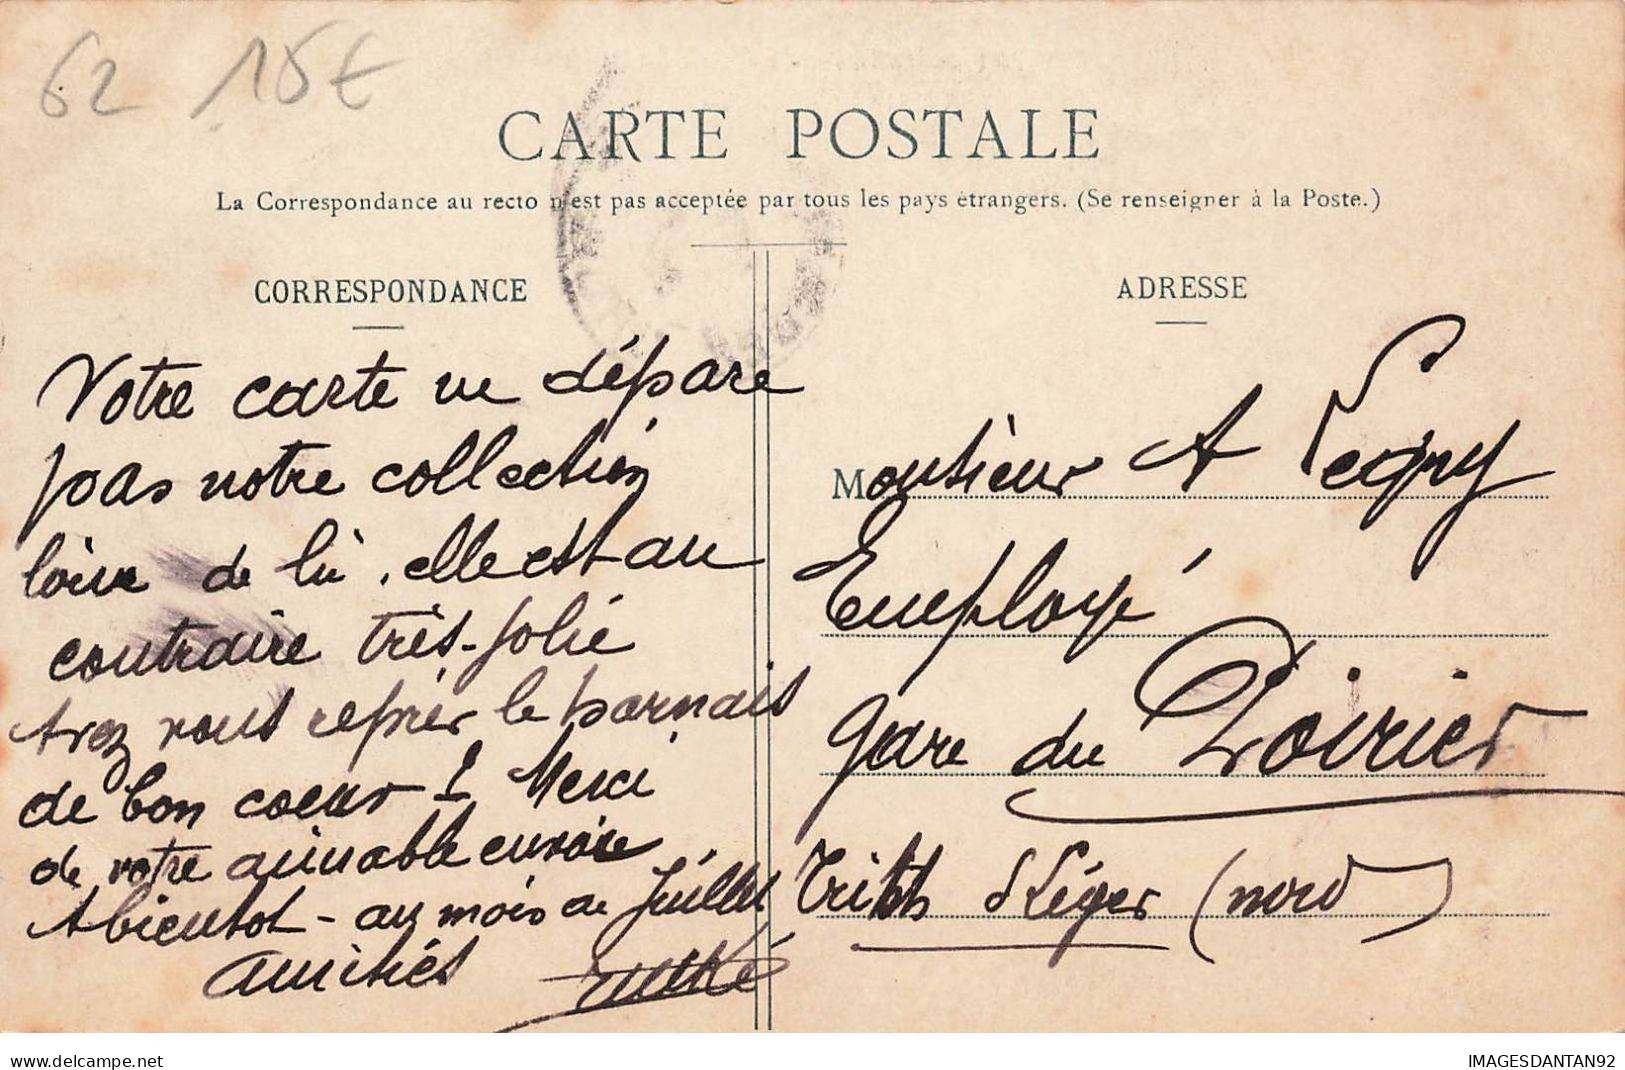 62 15€
CARTE POSTALE
La Correspondance au recto n'est pas acceptée par tous les pays étrangers. (Se renseigner à la Poste.)
CORRESPONDANCE
Votre carte ne dépare
pas notre collection
loin de là. elle est au
contraire très-jolie
Avez vous repris le harnais
de bon coeur ! Merci
de votre aimable envoie
A bientot - au mois de Juillet
amitiés
ADRESSE
Monsieur A
Employé
gare du Poirier
Trith St Léger (nord)
www.delcampe.net
IMAGESDANTAN92